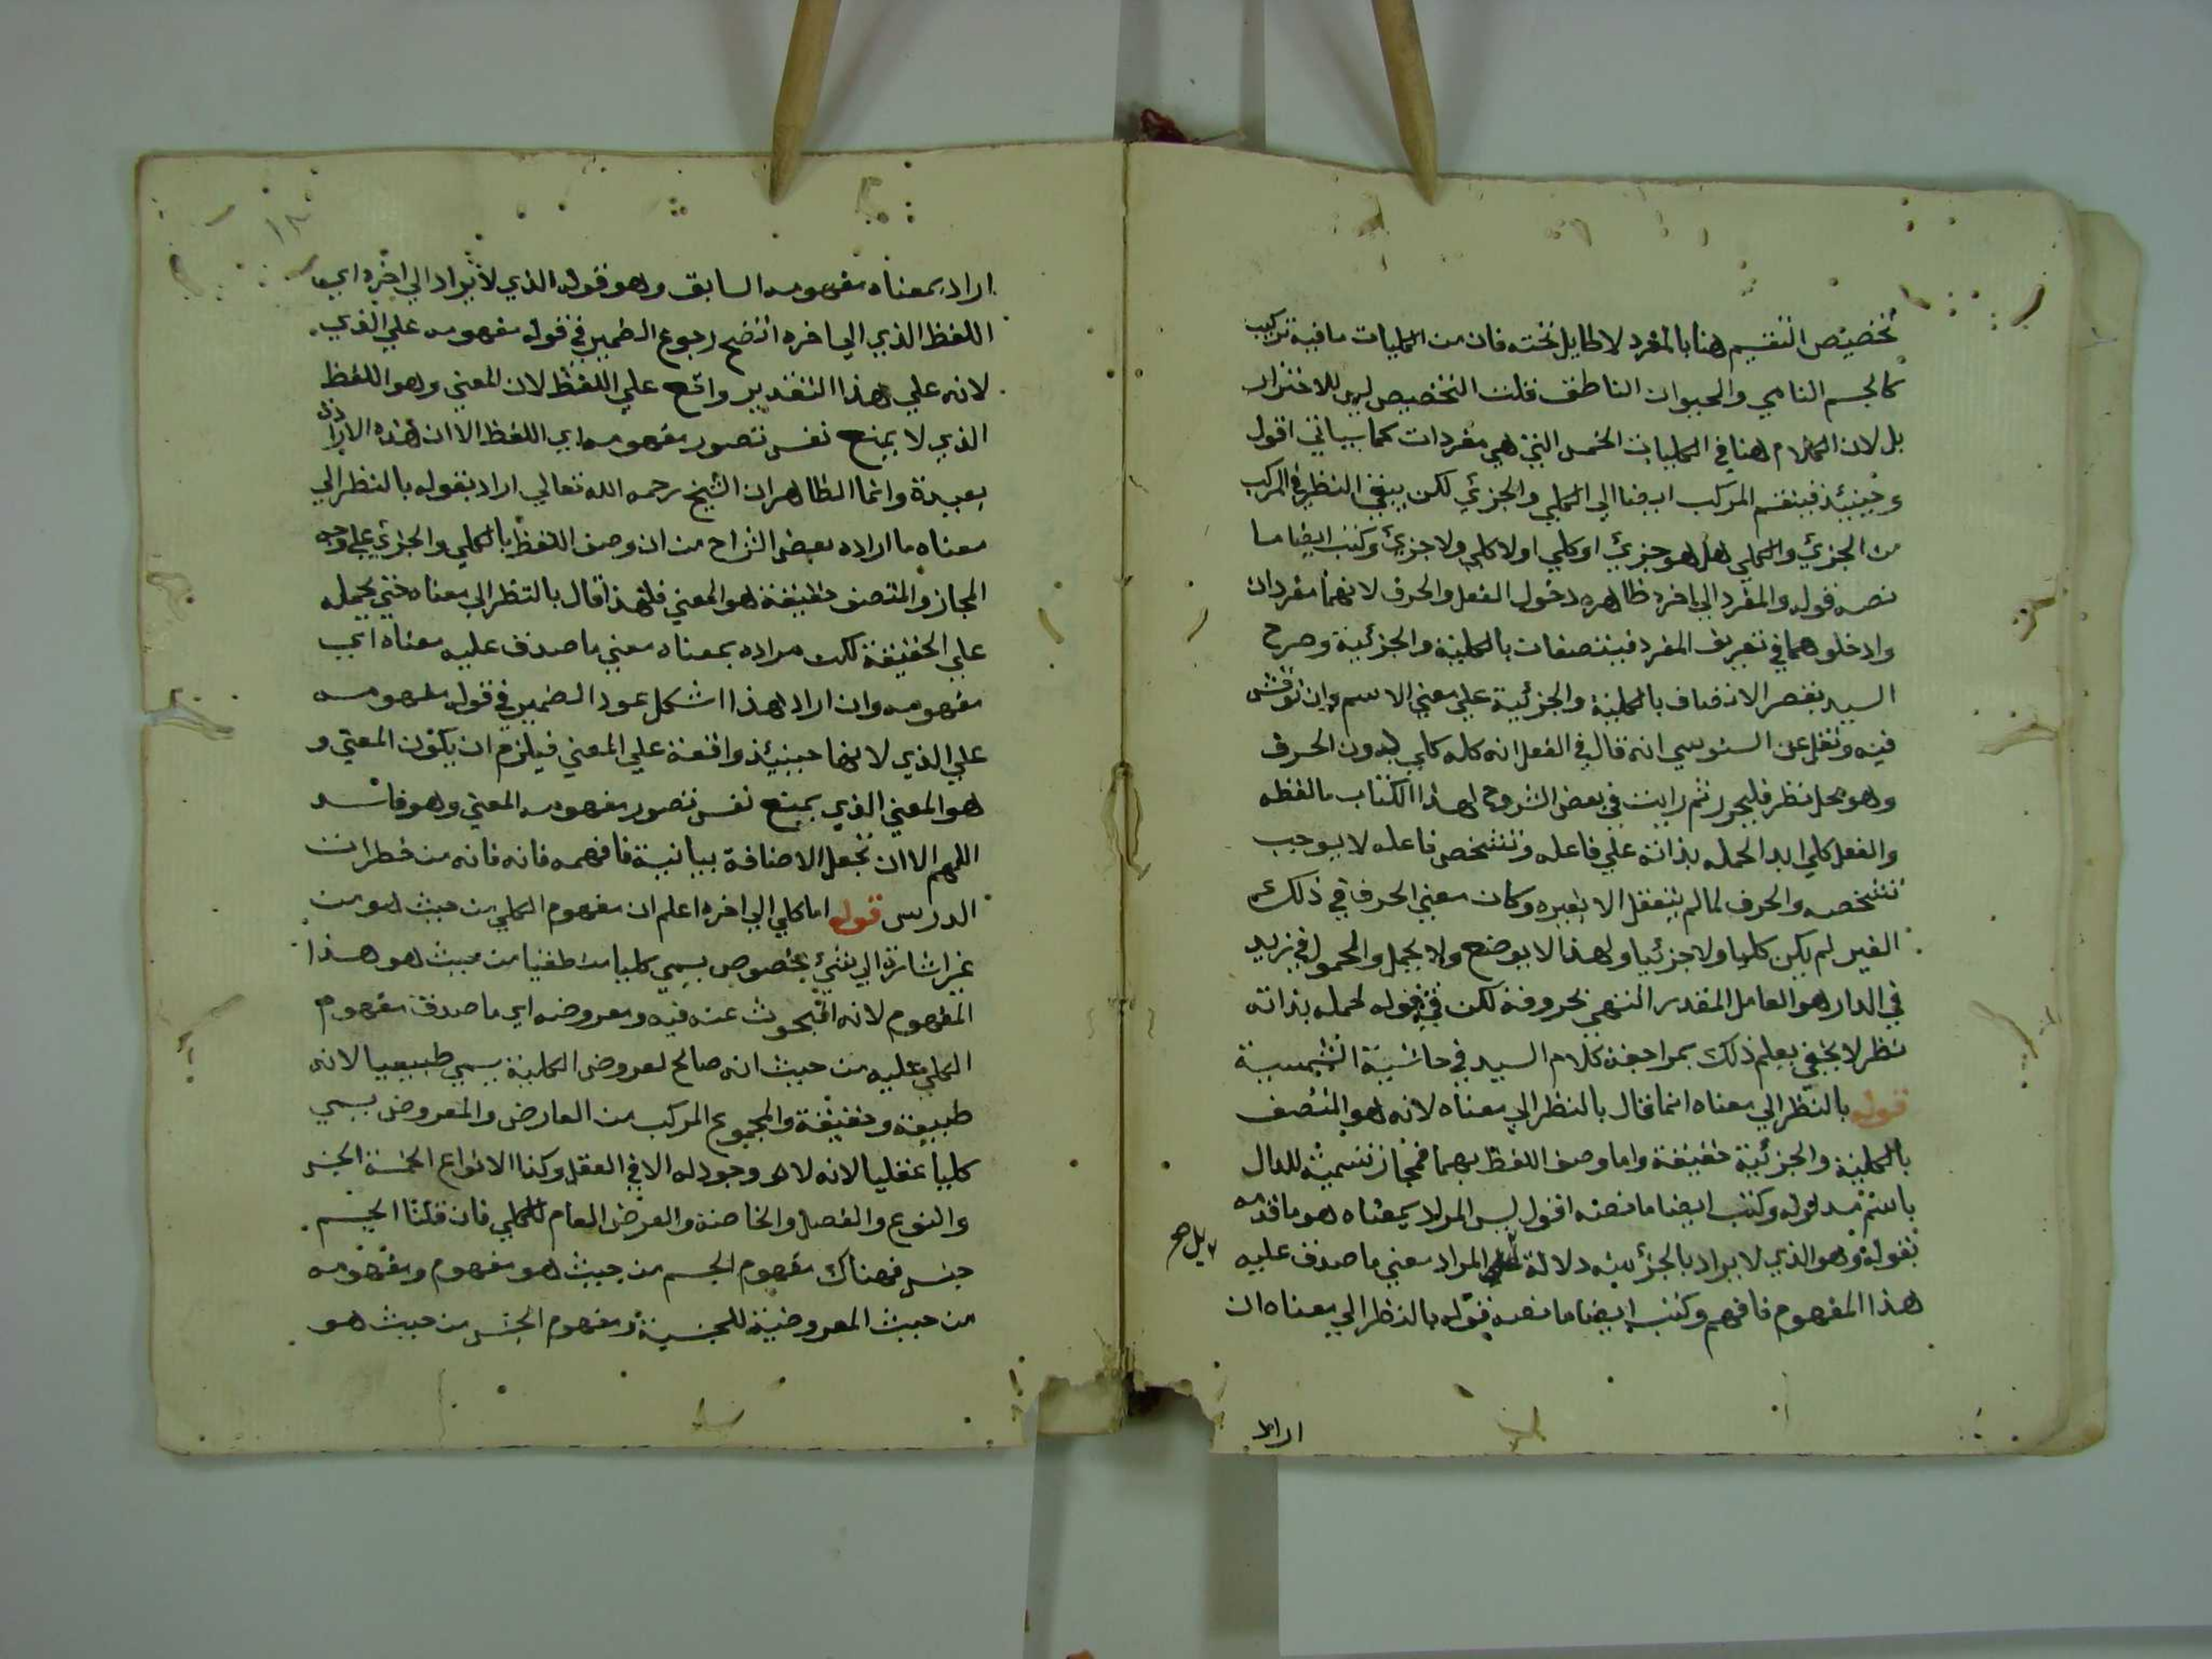 تخصيص التقسيم هنا بالمفرد لا طايل تحته فان من الكليات ما فيه تركيب
كالجسم النامي والحيوان الناطق قلت التخصيص ليس للاحتراز
بل لان الكلام هنا في الكليات الخمس التي هي مفردات كما سياتي اقول
وحينئذ فينقسم المركب ايضا الي الكلي والجزئي لكن يبقي النظر في المركب
من الجزئي والكلي هل هو جزئي او كلي او لا كلي ولا جزئي وكتب ايضا ما
نصه قوله والمفرد الي اخره ظاهره دخول الفعل والحرف لانهما مفردان
وادخلوهما في تعريف المفرد فيتصفان بالكلية والجزئية وصرح
السيد بقصر الاتصاف بالكلية والجزئية علي معني الاسم وان نوقش
فيه ونقل عن السنوسي انه قال في الفعل انه كله كلي بدون الحرف
وهو محل نظر فليحرر ثم رايت في بعض الشروح لهذا الكتاب ما لفظه
والفعل كلي ابدا لحمله بذاته علي فاعله وتشخص فاعله لا يوجب
تشخصه والحرف لما لم يتعقل الا بغيره وكان معني الحرف في ذلك
الغير لم يكن كليا ولا جزئيا ولهذا لا يوضع ولا يحمل والمحمول في زيد
في الدار هو العامل المقدر انتهي بحروفه لكن في قوله لحمله بذاته
نظر لا يخفي يعلم ذلك بمراجعة كلام السيد في حاشية الشمسية
قوله بالنظر الي معناه انما قال بالنظر الي معناه لانه هو المتصف
بالكلية والجزئية حقيقة واما وصف اللفظ بهما فمجاز تسمية للدال
باسم مدلوله وكتب ايضا ما نصه اقول ليس المراد بمعناه هو ما قدمه
بقوله وهو الذي لا يراد بالجزئيه دلالة بل المراد معني ما صدق عليه
هذا المفهوم فافهم وكتب ايضا ما نصه قوله بالنظر الي معناه ان
بل صح
اراد
١٨
اراد بمعناه مفهومه السابق وهو قوله الذي لا يراد الي اخره اي
اللفظ الذي الي اخره اتضح رجوع الضمير في قوله مفهومه علي الذي
لانه علي هذا التقدير واقع علي اللفظ لان المعني وهو اللفظ
الذي لا يمنع نفس تصور مفهومه اي اللفظ الا ان هذه الارادة
بعيدة وانما الظاهر ان الشيخ رحمه الله تعالي اراد بقوله بالنظر الي
معناه ما اراده بعض الشراح من ان وصف اللفظ بالكلي والجزئي علي وجه
المجاز والمتصف حقيقة هو المعني فلهذا قال بالنظر الي معناه حتي يحمله
علي الحقيقة لكن مراده بمعناه معني ما صدق عليه معناه اي
مفهومه وان اراد هذا اشكل عود الضمير في قوله مفهومه
علي الذي لانها حينئذ واقعة علي المعني فيلزم ان يكون المعني و
هو المعني الذي يمنع نفس تصور مفهومه المعني وهو فاسد
اللهم الا ان تجعل الاضافة بيانية فافهمه فانه فانه من خطرات
الدرس قوله اما كلي الي اخره اعلم ان مفهوم الكلي من حيث هو من
غير اشارة الي شيء مخصوص يسمي كليا منطقيا من حيث هو هذا
المفهوم لانه المبحوث عنه فيه ومعروضه اي ما صدق مفهوم
الكلي عليه من حيث انه صالح لعروض الكلية يسمي طبيعيا لانه
طبيعة وحقيقة والمجموع المركب من العارض والمعروض يسمي
كليا عقليا لانه لا وجود له الا في العقل وكذا الانواع الخمسة الجنس
والنوع والفصل والخاصة والعرض العام للكلي فان قلنا الجسم
جنس فهناك مفهوم الجسم من حيث هو مفهوم ومفهومه
من حيث المعروضية للجنسية ومفهوم الجنس من حيث هو